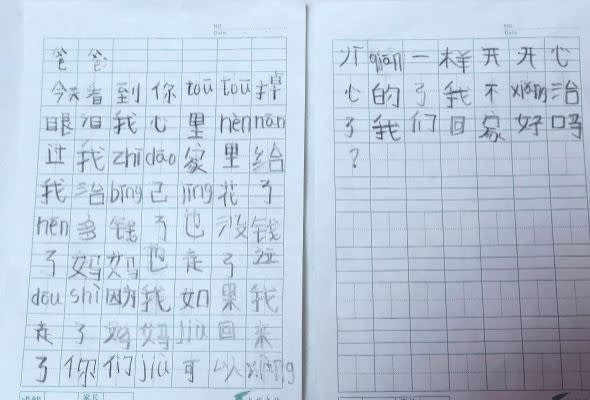 NO.
Date
爸爸
今天看到你tōutōu掉
眼泪我心里hěnnán
过我zhīdào家里给
我治bìng已jīng花了
hěn多钱了也没钱
了妈妈也走了这
dōu shì因为我如果我
走了妈妈jiù回来
了你们jiù可以xiàng
NO.
Date
以qián一样开开心
心的了我不xiǎng治
了我们回家好吗
？